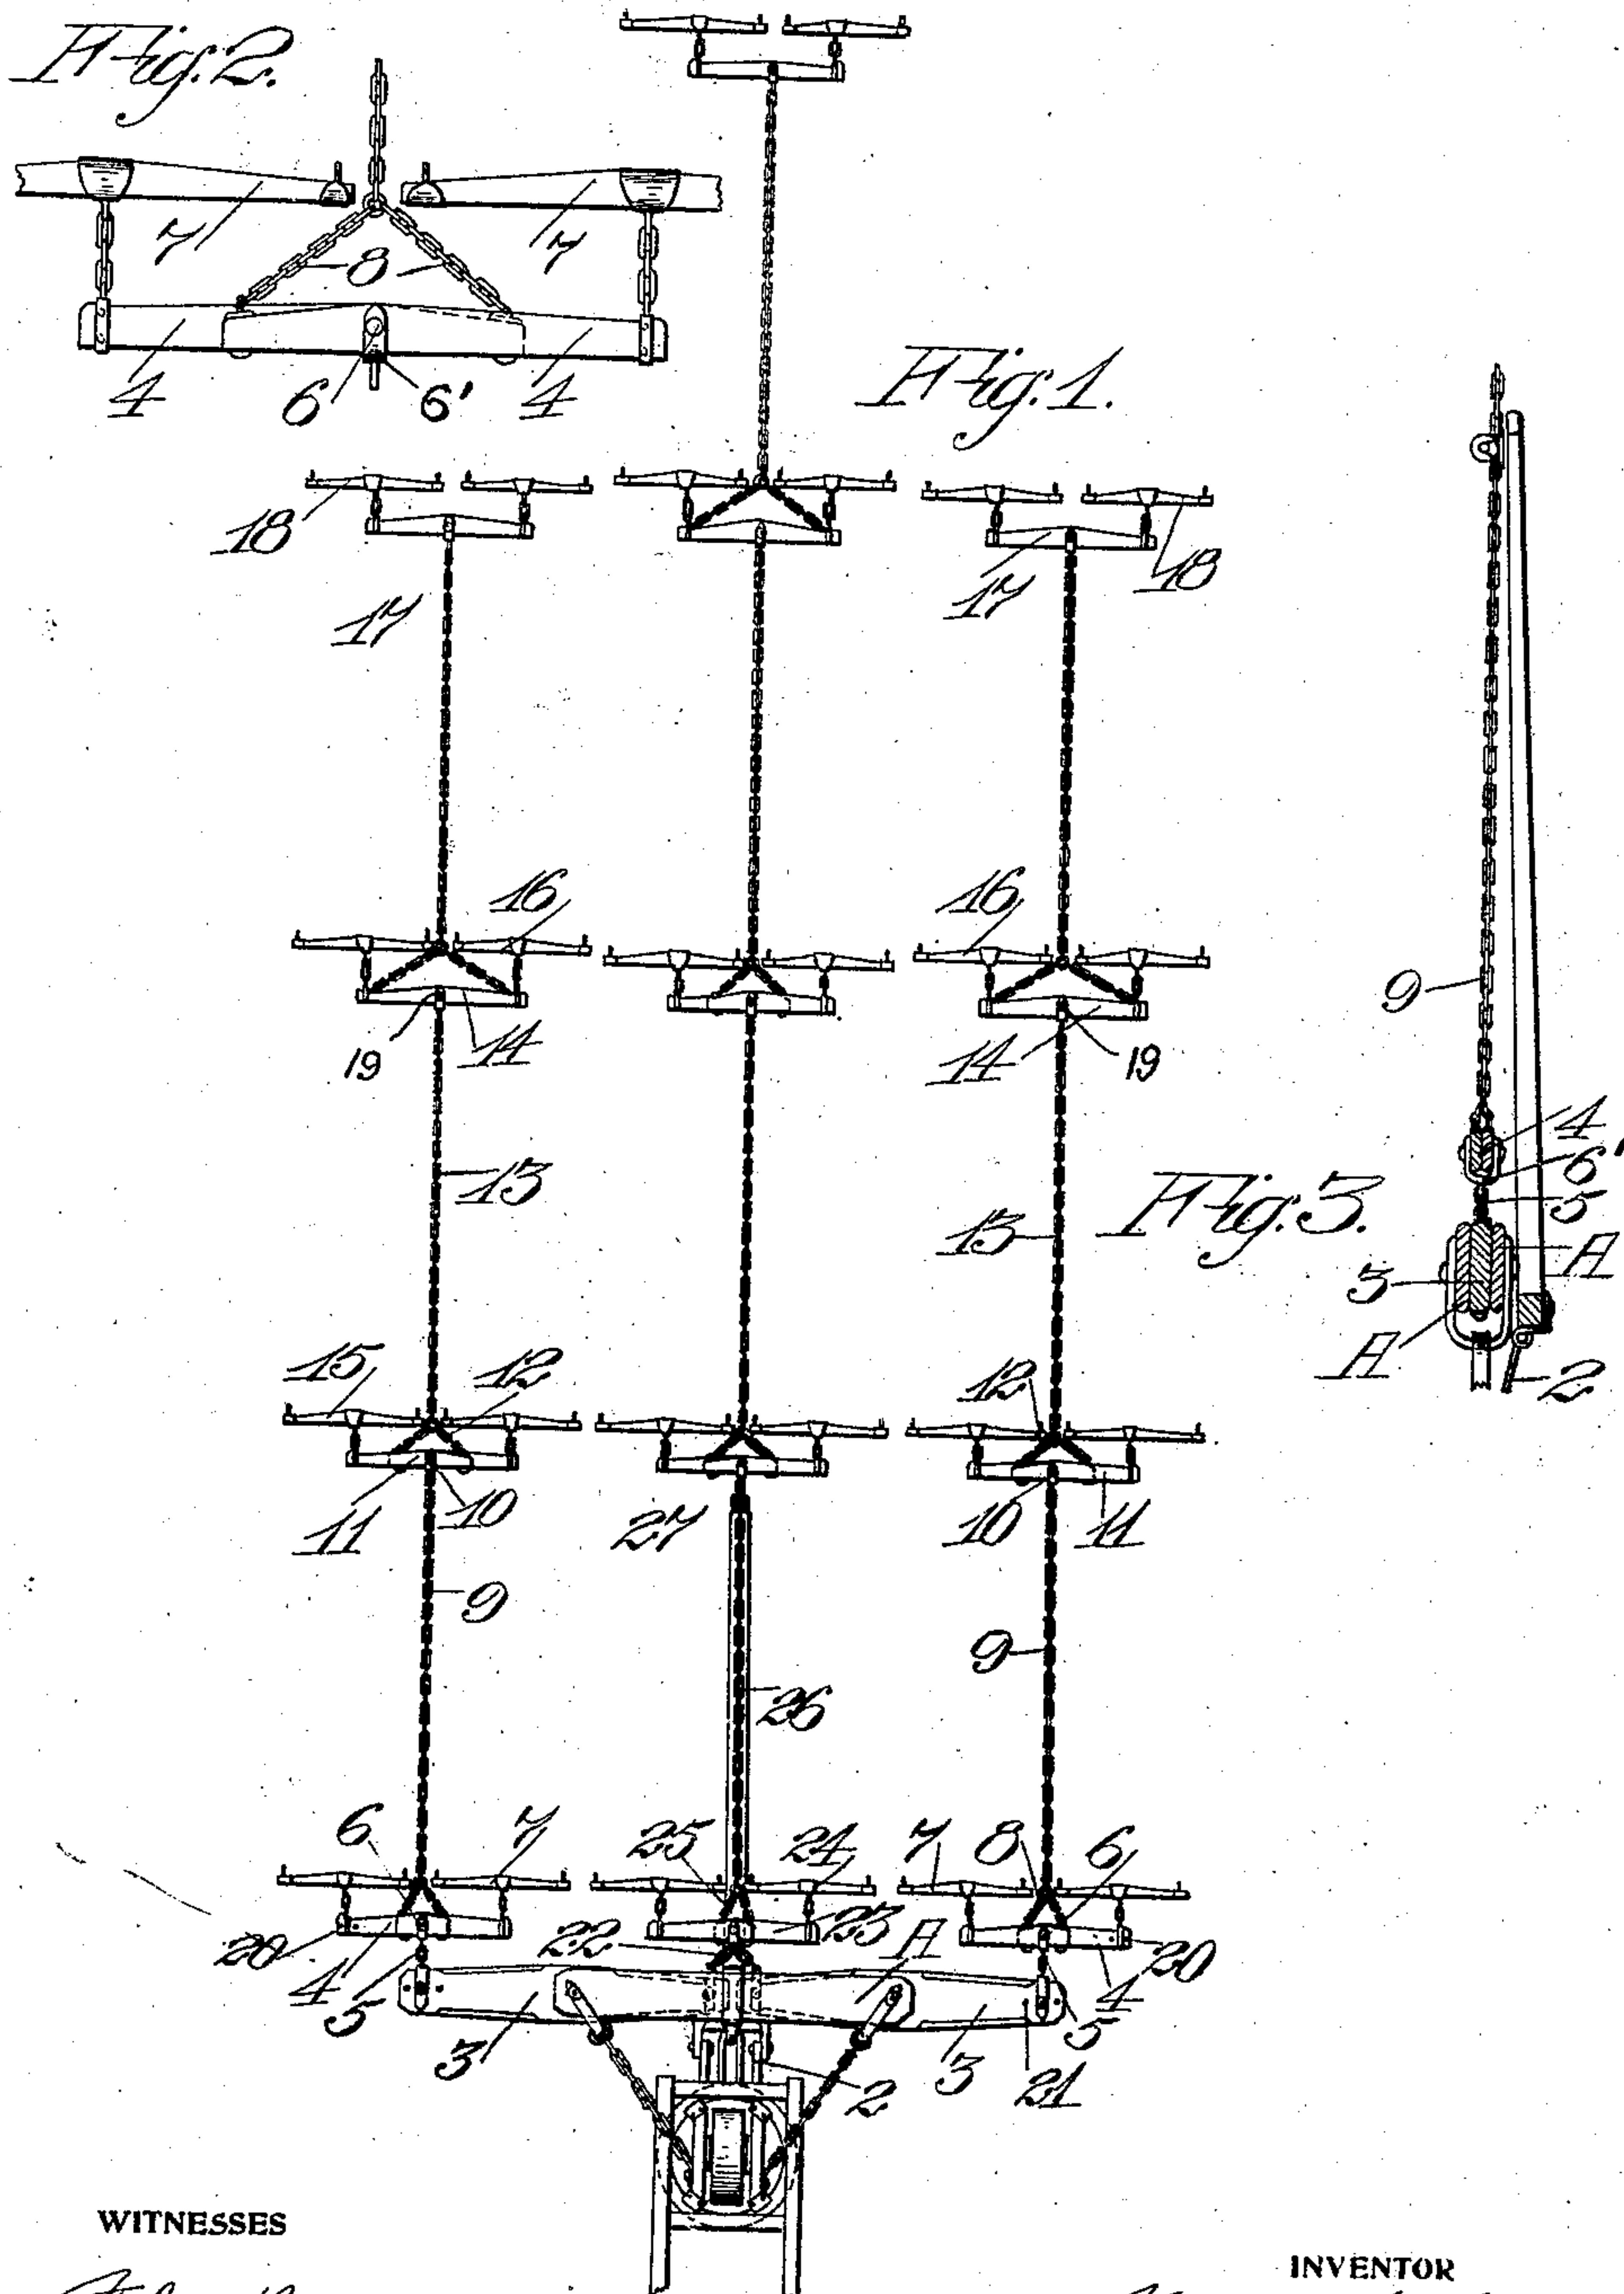 Fig. 2.
7
7
8
4
6
6'
4
Fig. 1.
18
17
17
18
16
16
9
19
14
14
19
4
6'
13
5
Fig. 3.
13
A
3
15
12
12
A
2
11
10
27
10
11
9
9
26
6
7
25
24
7
8
6
20
4
22
23
A
4
20
5
5
3
3
21
2
WITNESSES
INVENTOR